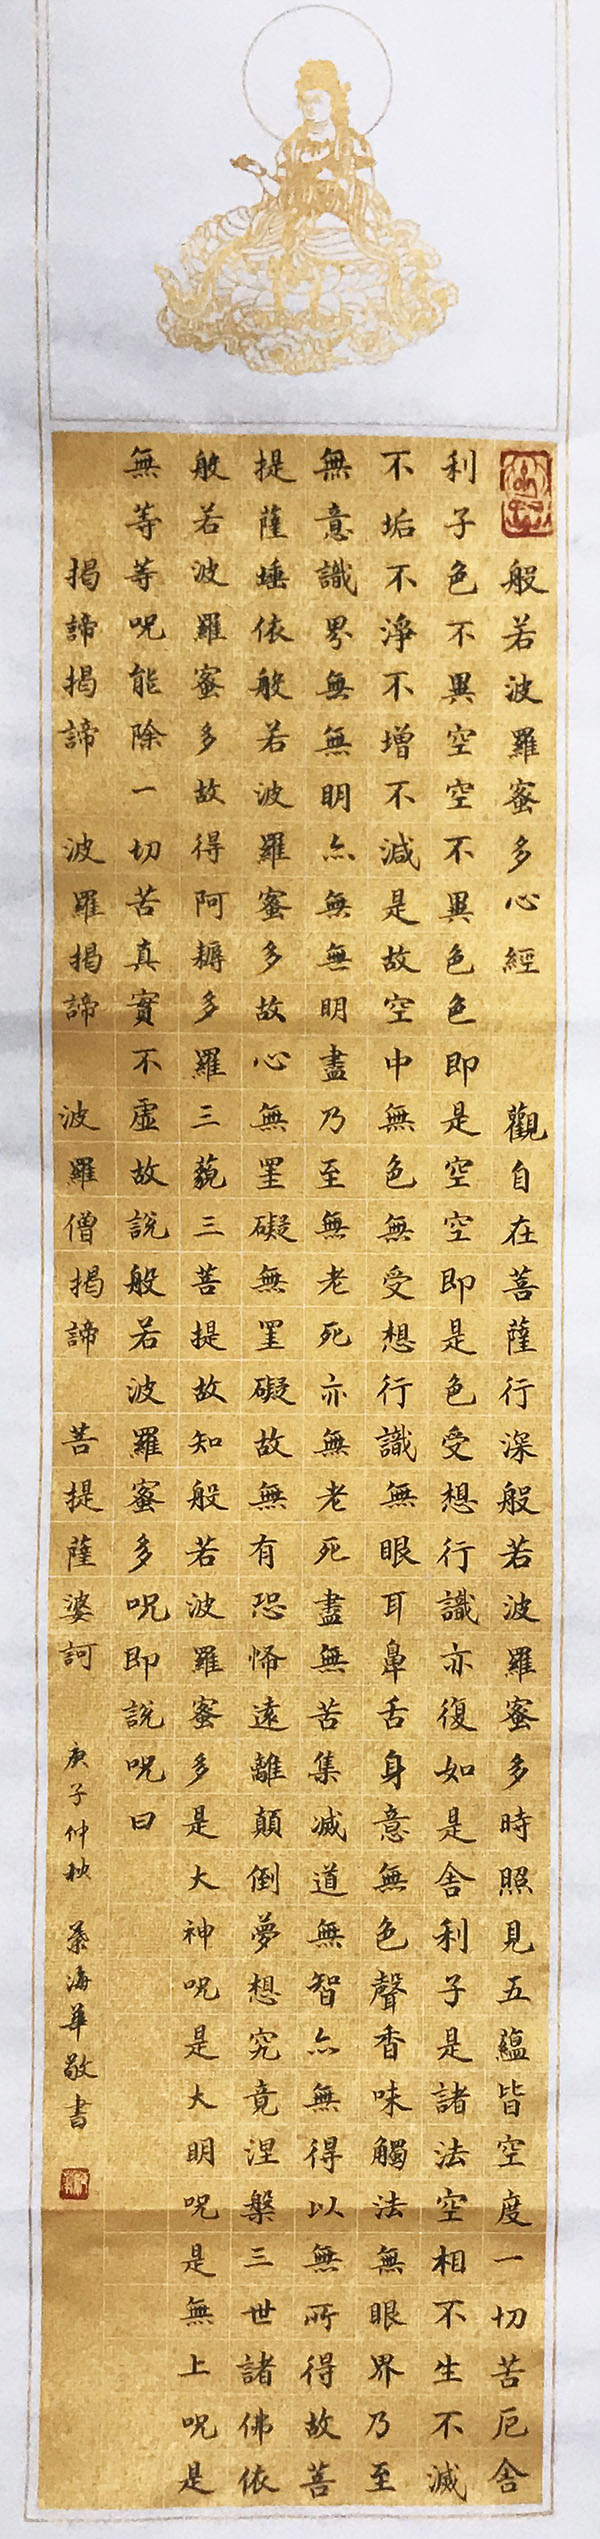 般若波羅蜜多心經 觀自在菩薩行深般若波羅蜜多時照見五蘊皆空度一切苦厄舍
利子色不異空空不異色色即是空空即是色受想行識亦復如是舍利子是諸法空相不生不滅
不垢不淨不增不減是故空中無色無受想行識無眼耳鼻舌身意無色聲香味觸法無眼界乃至
無意識界無無明亦無無明盡乃至無老死亦無老死盡無苦集滅道無智亦無得以無所得故菩
提薩埵依般若波羅蜜多故心無罣礙無罣礙故無有恐怖遠離顛倒夢想究竟涅槃三世諸佛依
般若波羅蜜多故得阿耨多羅三藐三菩提故知般若波羅蜜多是大神呪是大明呪是無上呪是
無等等呪能除一切苦真實不虛故說般若波羅蜜多呪即說呪曰
揭諦揭諦 波羅揭諦 波羅僧揭諦 菩提薩婆訶 庚子仲秋 海華敬書